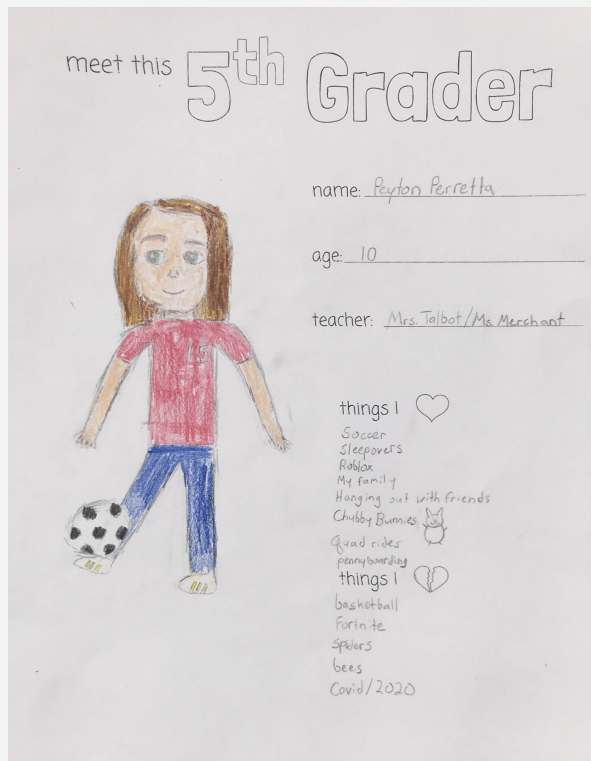 meet this 5th Grader
name: Peyton Perretta
age: 10
teacher: Mrs. Talbot/Ms. Merchant
15
things I
Soccer
Sleepovers
Roblox
My family
Hanging out with friends
Chubby Bunnies
quad rides
pennyboarding
things I
basketball
Fortnite
Spiders
bees
Covid/2020